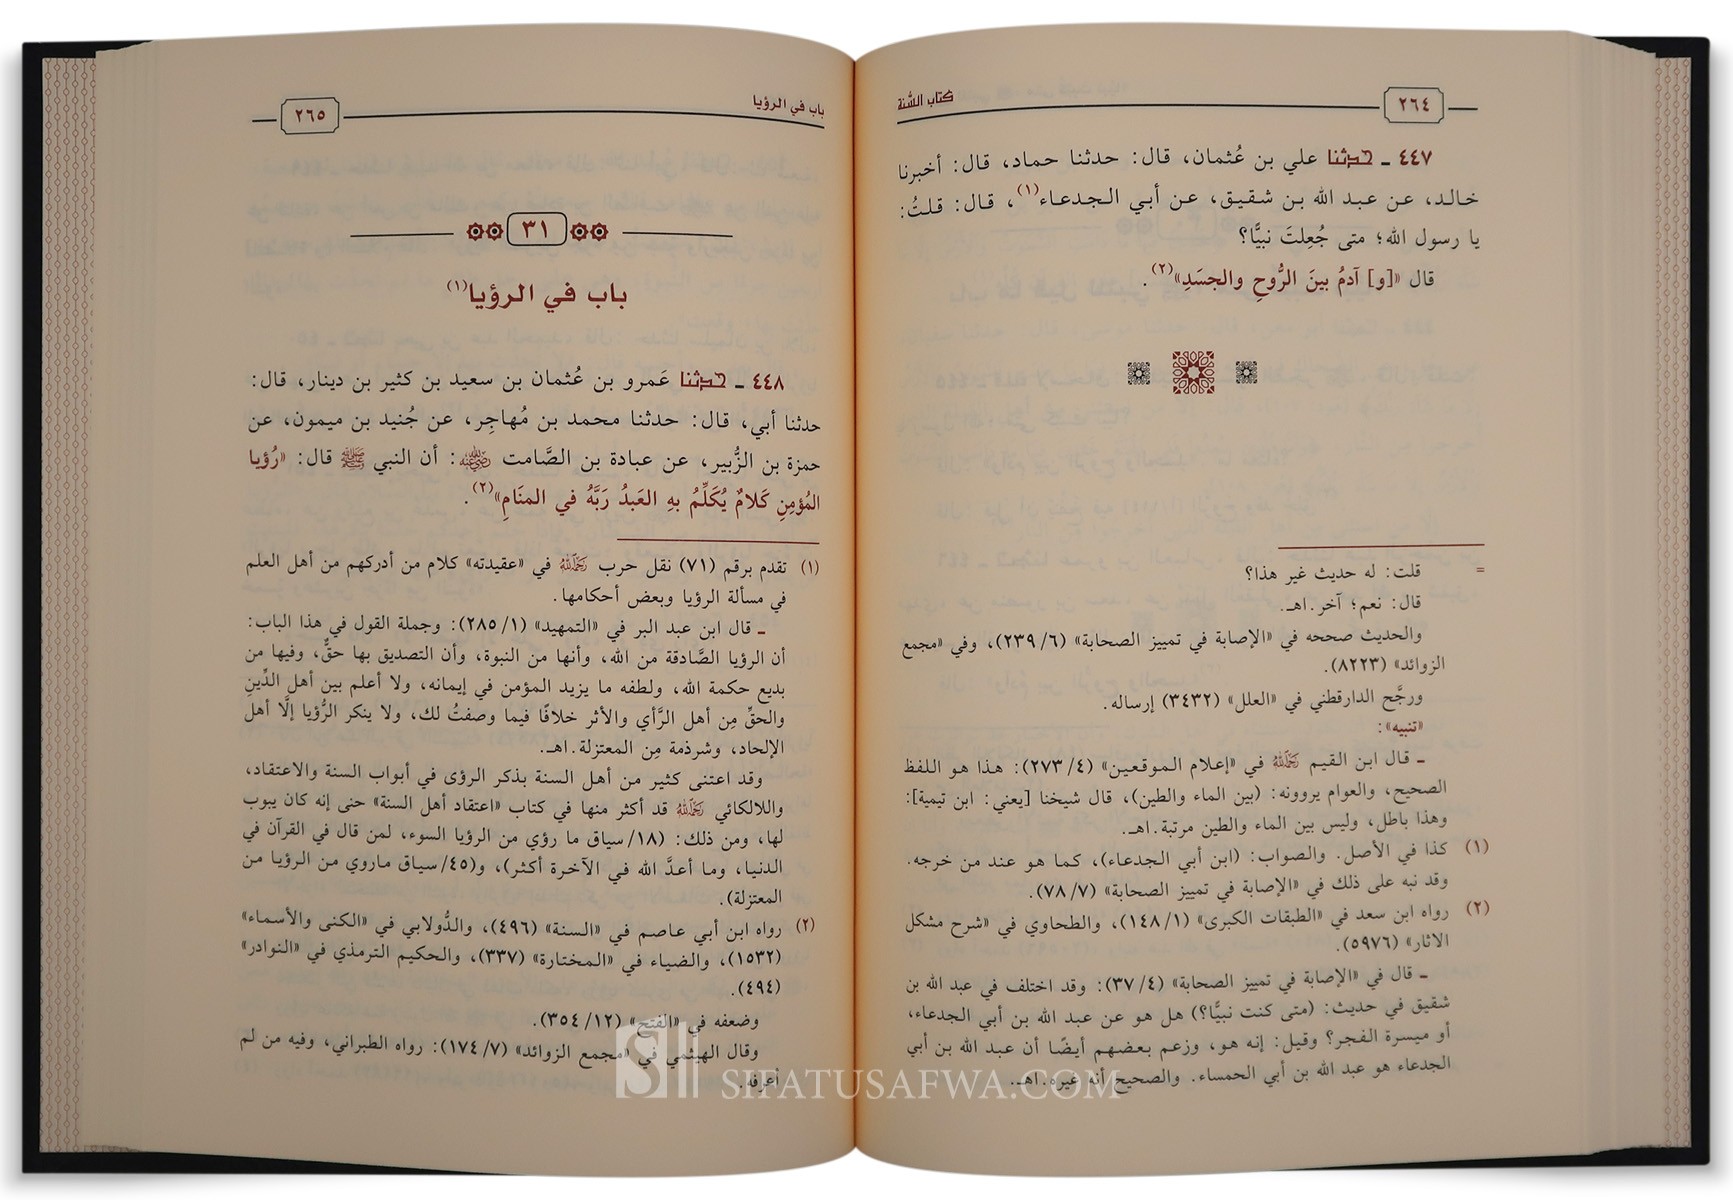 ٢٦٤
كتاب السُّنة
٤٤٧ ـ حدثنا علي بن عُثمان، قال: حدثنا حماد، قال: أخبرنا
خالد، عن عبد الله بن شقيق، عن أبي الجدعاء(١)، قال: قلتُ:
يا رسول الله؛ متى جُعِلتَ نبيًّا؟
قال «[و] آدمُ بينَ الرُّوحِ والجسَدِ»(٢).
=
قلت: له حديث غير هذا؟
قال: نعم؛ آخر.اهـ.
والحديث صححه في «الإصابة في تمييز الصحابة» (٦/ ٢٣٩)، وفي «مجمع
الزوائد» (٨٢٢٣).
ورجَّح الدارقطني في «العلل» (٣٤٣٢) إرساله.
«تنبيه»:
ـ قال ابن القيم رَحِمَهُ اللهُ في «إعلام الموقعين» (٤/ ٢٧٣): هذا هو اللفظ
الصحيح، والعوام يروونه: (بين الماء والطين)، قال شيخنا [يعني: ابن تيمية]:
وهذا باطل، وليس بين الماء والطين مرتبة.اهـ.
(١) كذا في الأصل. والصواب: (ابن أبي الجدعاء)، كما هو عند من خرجه.
وقد نبه على ذلك في «الإصابة في تمييز الصحابة» (٧/ ٧٨).
(٢) رواه ابن سعد في «الطبقات الكبرى» (١/ ١٤٨)، والطحاوي في «شرح مشكل
الاثار» (٥٩٧٦).
ـ قال في «الإصابة في تمييز الصحابة» (٤/ ٣٧): وقد اختلف في عبد الله بن
شقيق في حديث: (متى كنت نبيًّا؟) هل هو عن عبد الله بن أبي الجدعاء،
أو ميسرة الفجر؟ وقيل: إنه هو، وزعم بعضهم أيضًا أن عبد الله بن أبي
الجدعاء هو عبد الله بن أبي الحمساء. والصحيح أنه غيره.اهـ.
باب في الرؤيا
٢٦٥
٣١
باب في الرؤيا(١)
٤٤٨ ـ حدثنا عَمرو بن عُثمان بن سعيد بن كثير بن دينار، قال:
حدثنا أبي، قال: حدثنا محمد بن مُهاجِر، عن جُنيد بن ميمون، عن
حمزة بن الزُّبير، عن عبادة بن الصَّامت رضي الله عنه: أن النبي ﷺ قال: «رُؤيا
المُؤمِنِ كَلامٌ يُكَلِّمُ بهِ العَبدُ رَبَّهُ في المنَامِ»(٢).
(١) تقدم برقم (٧١) نقل حرب رَحِمَهُ اللهُ في «عقيدته» كلام من أدركهم من أهل العلم
في مسألة الرؤيا وبعض أحكامها.
ـ قال ابن عبد البر في «التمهيد» (١/ ٢٨٥): وجملة القول في هذا الباب:
أن الرؤيا الصَّادقة من الله، وأنها من النبوة، وأن التصديق بها حقٌّ، وفيها من
بديع حكمة الله، ولطفه ما يزيد المؤمن في إيمانه، ولا أعلم بين أهل الدِّينِ
والحقِّ مِن أهل الرَّأي والأثر خلافًا فيما وصفتُ لك، ولا ينكر الرُّؤيا إلَّا أهل
الإلحاد، وشرذمة مِن المعتزلة.اهـ.
وقد اعتنى كثير من أهل السنة بذكر الرؤى في أبواب السنة والاعتقاد،
واللالكائي رَحِمَهُ اللهُ قد أكثر منها في كتاب «اعتقاد أهل السنة» حتى إنه كان يبوب
لها، ومن ذلك: (١٨/ سياق ما رؤي من الرؤيا السوء، لمن قال في القرآن في
الدنيا، وما أعدَّ الله في الآخرة أكثر)، و(٤٥/ سياق ماروي من الرؤيا من
المعتزلة).
(٢) رواه ابن أبي عاصم في «السنة» (٤٩٦)، والدُّولابي في «الكنى والأسماء»
(١٥٣٢)، والضياء في «المختارة» (٣٣٧)، والحكيم الترمذي في «النوادر»
(٤٩٤).
وضعفه في «الفتح» (١٢/ ٣٥٤).
وقال الهيثمي في «مجمع الزوائد» (٧/ ١٧٤): رواه الطبراني، وفيه من لم
أعرفه.
SIFATUSAFWA.COM